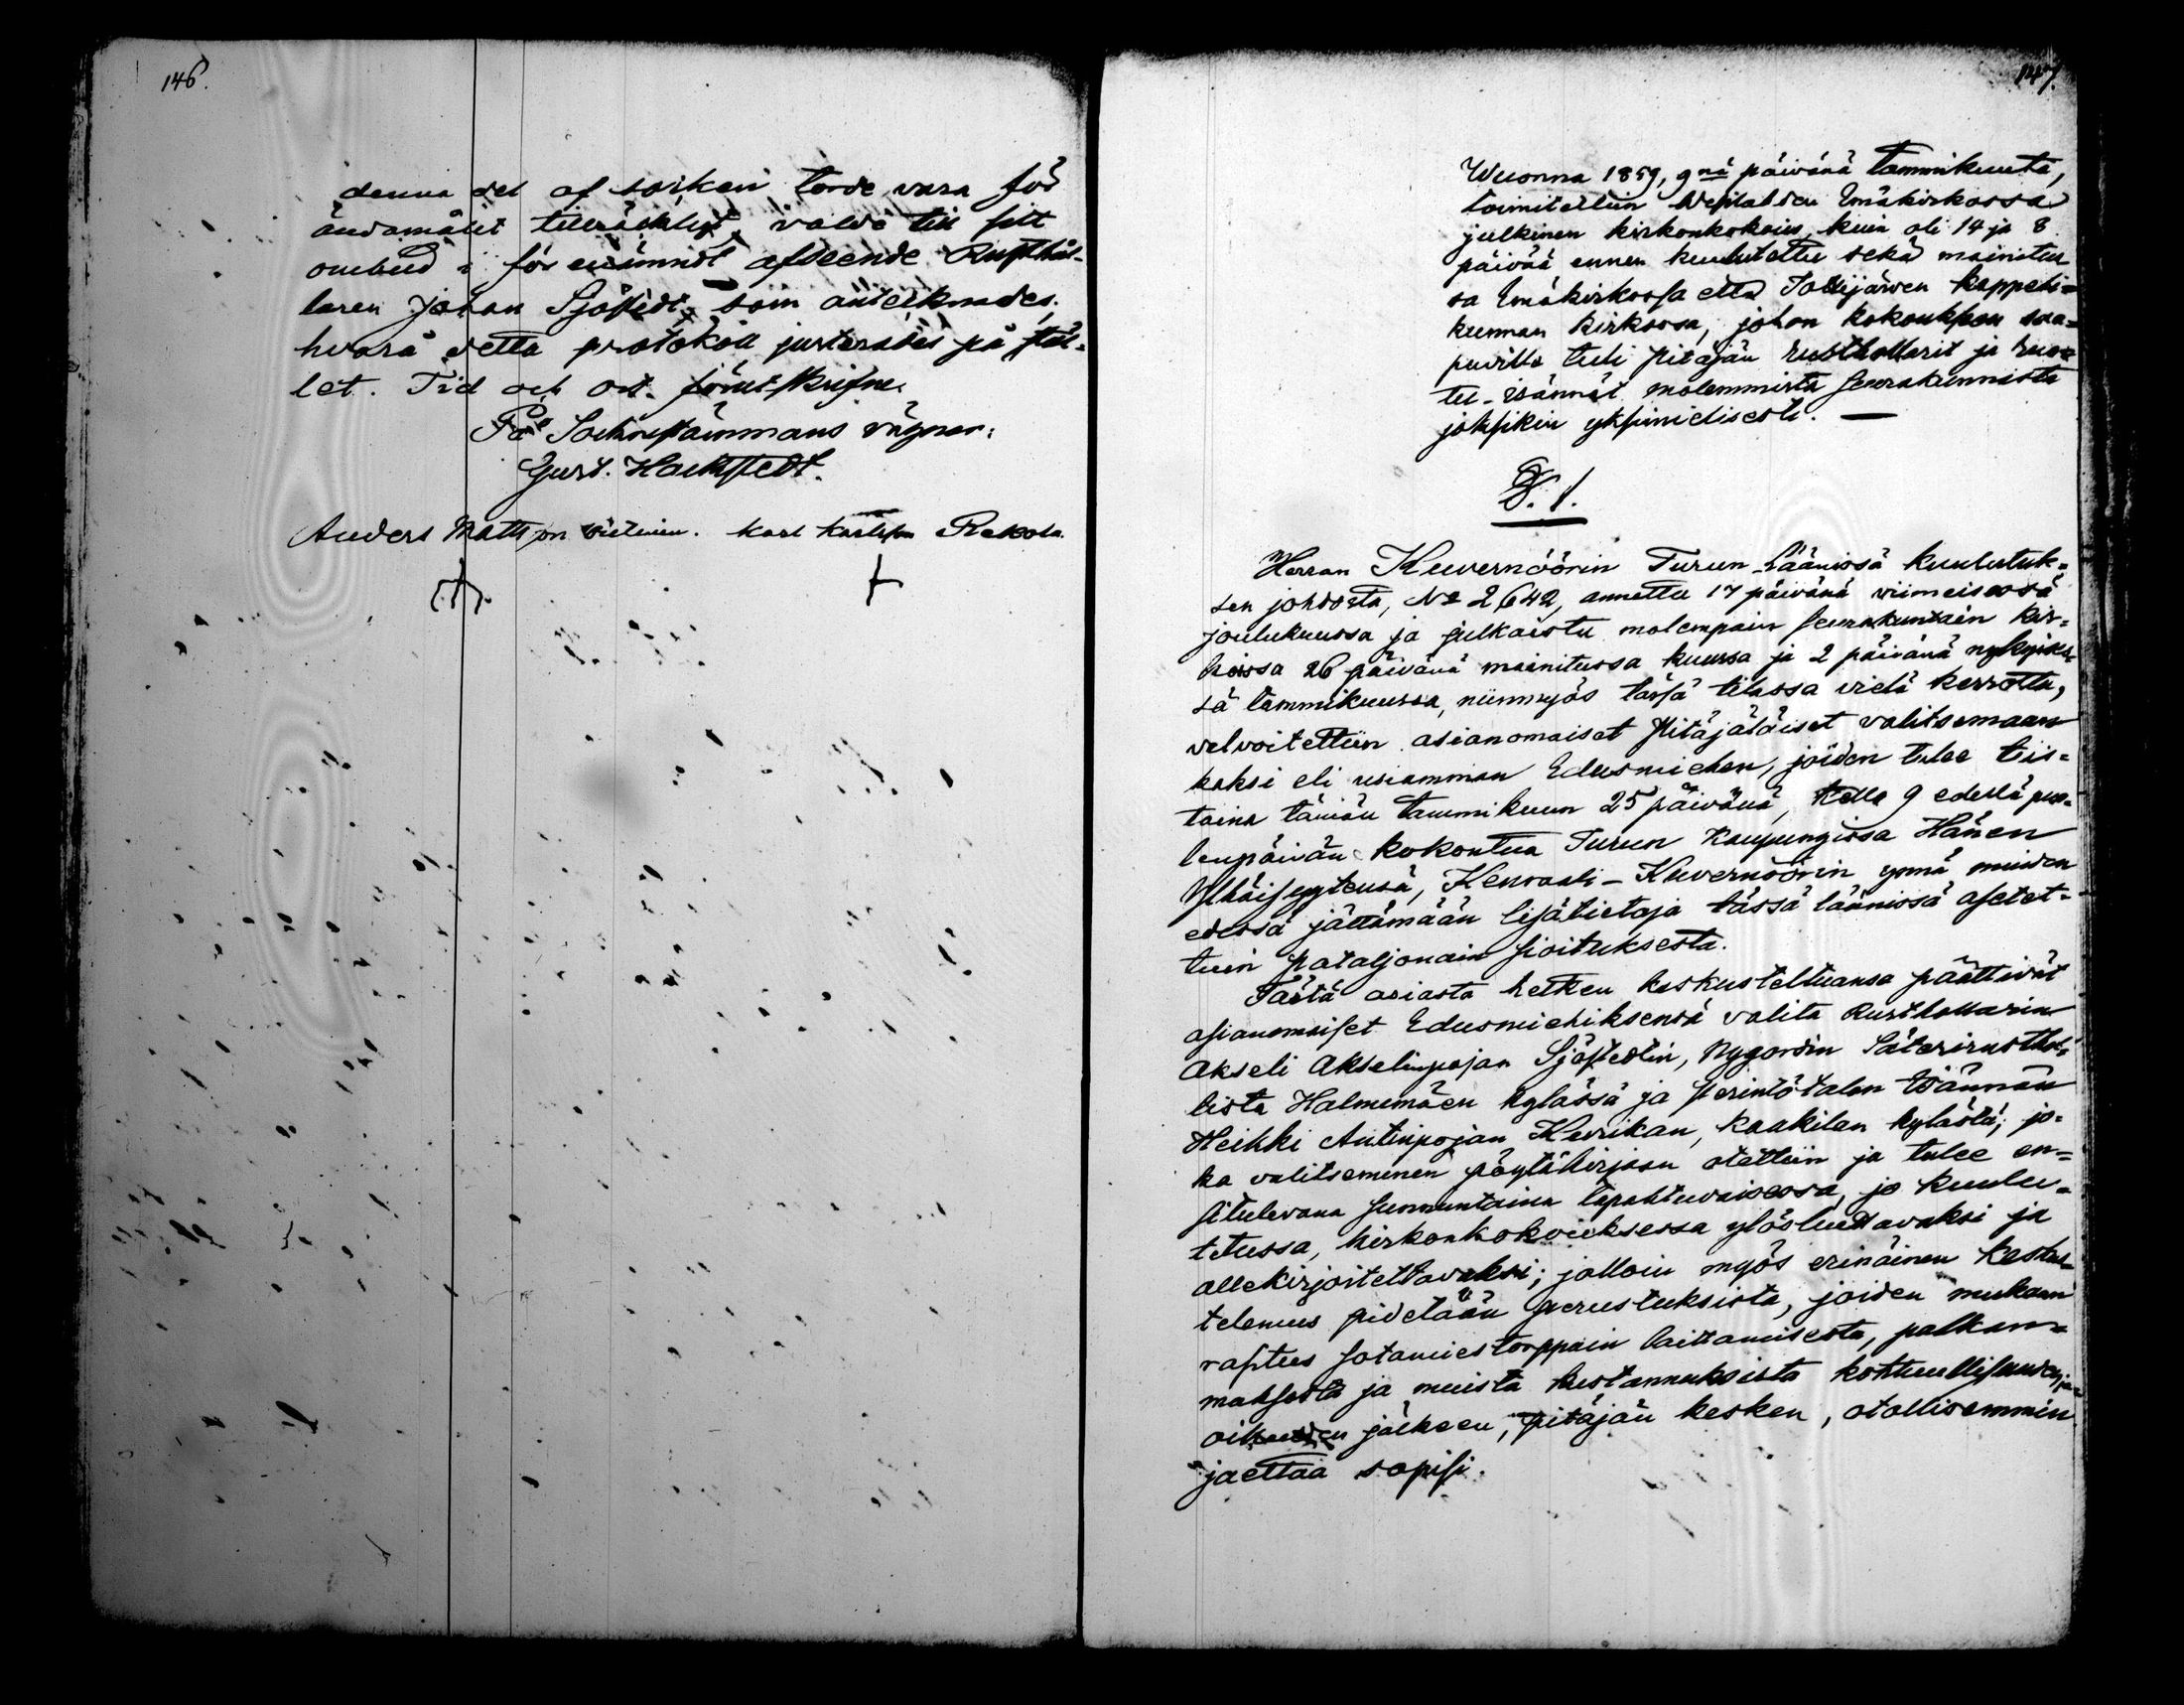 146.
denna del af socknen torde vara för
ändamålet tillräckligt, valde till sitt
ombud i för enämndt afseende Rusthål-
laren Johan Sjöstedt, som antecknades,
hvarå detta protokoll justerades på stäl-
let. Tid och ort förutskrifne.
På Sockenstämmans vägnar:
Gust. Hochstedt.
Anders Mattsson. Karl Karlsson Rekola.
147.
Wuonna 1859, 9nä päivänä Tammikuuta,
toimitettiin Wesilahden Emäkirkossa
julkinen kirkonkokous, kuin oli 14 ja 8
päivää ennen kuulutettu sekä mainitus
sa Emäkirkossa että Tottijärven kappeli-
kunnan kirkossa, johon kokouksen saa-
puvilla tuli pitäjän rusthollarit ja ruo-
tu-isännät molemmista seurakunnista
joksikin yksimielisesti. —
§. 1.
Herran Kuvernöörin Turun Läänissä kuulutuk-
sen johdosta, No 2,642, annettu 17 päivänä viimeisessä
joulukuussa ja julkaistu molempain seurakuntain kir-
koissa 26 päivänä mainitussa kuussa ja 2 päivänä nykyises-
sä tammikuussa, niinmyös tässä tilassa vielä kerrottu,
velvoitettiin asianomaiset Pitäjäläiset valitsemaan
kaksi eli usiamman Edusmiehen, joiden tulee tiis-
taina tämän tammikuun 25 päivänä, kello 9 edellä puo-
lenpäivän kokontua Turun Kaupungissa Hänen
Ylhäisyytensä, Kenraali-Kuvernöörin ynnä muiden
edessä jättämään lisätietoja tässä läänissä asetet-
tuin pataljonain sioituksesta.
Tästä asiasta hetken keskusteltuansa päättivät
asianomaiset Edusmiehiksensä valita Rusthollarin
Akseli Akselinpojan Sjöstedtin, Nygordin Säterirusthol-
lista Halmemäen kylässä ja perintötalon Isännän
Heikki Antinpojan Keurikan, Kaakilan kylästä; jo-
ka valitseminen pöytäkirjaan otettiin ja tulee en-
situlevana sunnuntaina tapahtuvaisessa, jo kuulu-
tetussa, kirkonkokouksessa ylösluettavaksi ja
allekirjoitettavaksi; jolloin myös erinäinen keskus-
telemus pidetään perustuksista, joiden mukaan
rasitus sotamiestorppain laittamisesta, palkan-
maksosta ja muista kustannuksista kohtuullisuuden ja
oikeuden jälkeen, pitäjän kesken, otollisemmin
jaettaa sopisi.